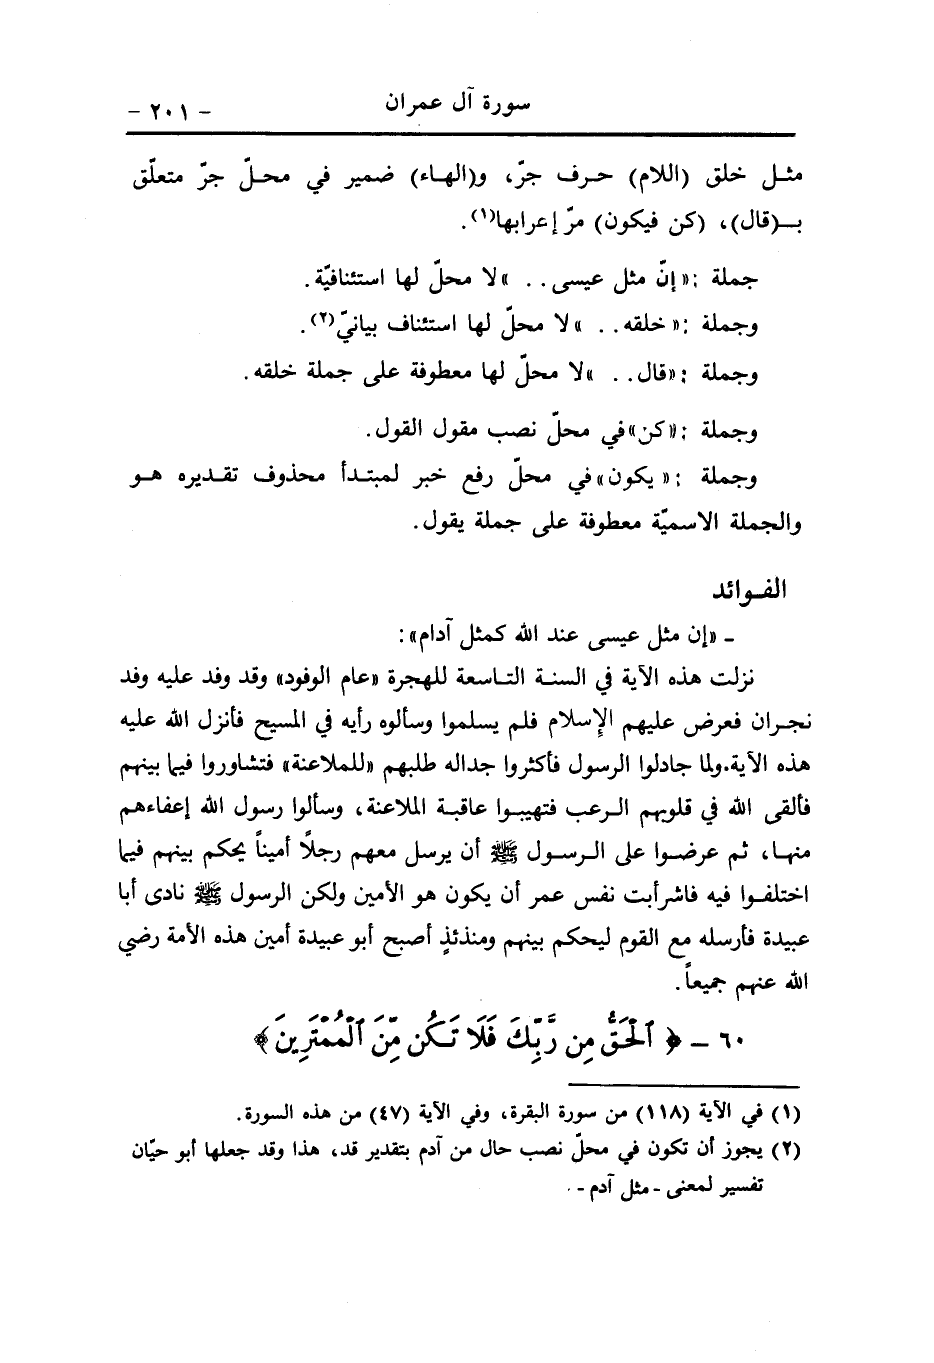 سورة آل عمران
- ٢٠١ -
مثـل خلق (اللام) حـرف جرّ، و(الهـاء) ضمير في محـلّ جرّ متعلّق
بـ(قال)، (كن فيكون) مرّ إعرابها(١).
جملة :«إنّ مثل عيسى . . »لا محلّ لها استئنافيّة.
وجملة :«خلقه . . »لا محلّ لها استئناف بيانيّ(٢).
وجملة :«قال . . »لا محلّ لها معطوفة على جملة خلقه.
وجملة :«كن»في محلّ نصب مقول القول.
وجملة :«يكون»في محلّ رفع خبر لمبتـدأ محذوف تقـديره هـو
والجملة الاسميّة معطوفة على جملة يقول.
الفـوائد
ـ «إن مثل عيسى عند الله كمثل آدام»:
نزلت هذه الآية في السنـة التـاسعة للهجرة «عام الوفود» وقد وفد عليه وفد
نجـران فعرض عليهم الإسلام فلم يسلموا وسألوه رأيه في المسيح فأنزل الله عليه
هذه الآية.ولما جادلوا الرسول فأكثروا جداله طلبهم «للملاعنة» فتشاوروا فيما بينهم
فألقى الله في قلوبهم الـرعب فتهيبـوا عاقبـة الملاعنة، وسألوا رسول الله إعفاءهم
منهـا، ثم عرضـوا على الـرسـول ﷺ أن يرسل معهم رجلًا أميناً يحكم بينهم فيما
اختلفـوا فيه فاشرأبت نفس عمر أن يكون هو الأمين ولكن الرسول ﷺ نادى أبا
عبيدة فأرسله مع القوم ليحكم بينهم ومنذئذٍ أصبح أبو عبيدة أمين هذه الأمة رضي
الله عنهم جميعاً.
٦٠ ـ ﴿ ٱلْحَقُّ مِن رَّبِّكَ فَلَا تَكُن مِّنَ ٱلْمُمْتَرِينَ ﴾
(١) في الآية (١١٨) من سورة البقرة، وفي الآية (٤٧) من هذه السورة.
(٢) يجوز أن تكون في محلّ نصب حال من آدم بتقدير قد، هذا وقد جعلها أبو حيّان
تفسير لمعنى ـ مثل آدم ـ.